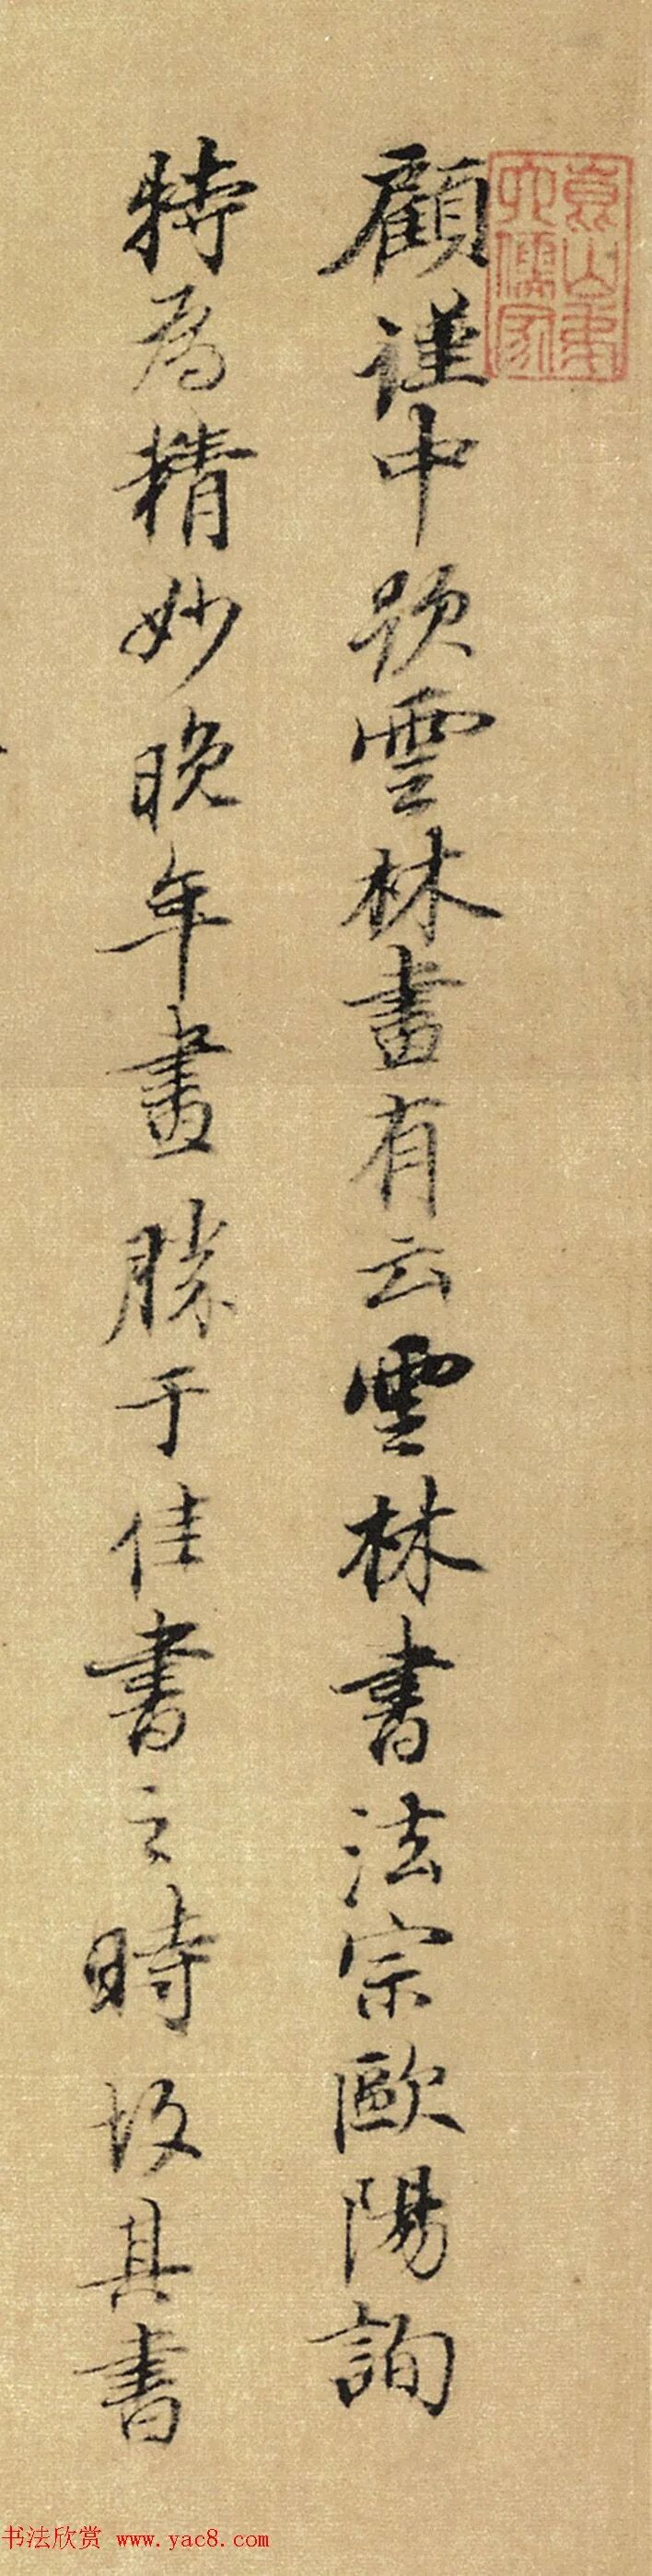 顧謹中題雲林畫有云雲林書法宗歐陽詢
特為精妙晚年畫勝于佳書之時故其書
书法欣赏 www.yac8.com